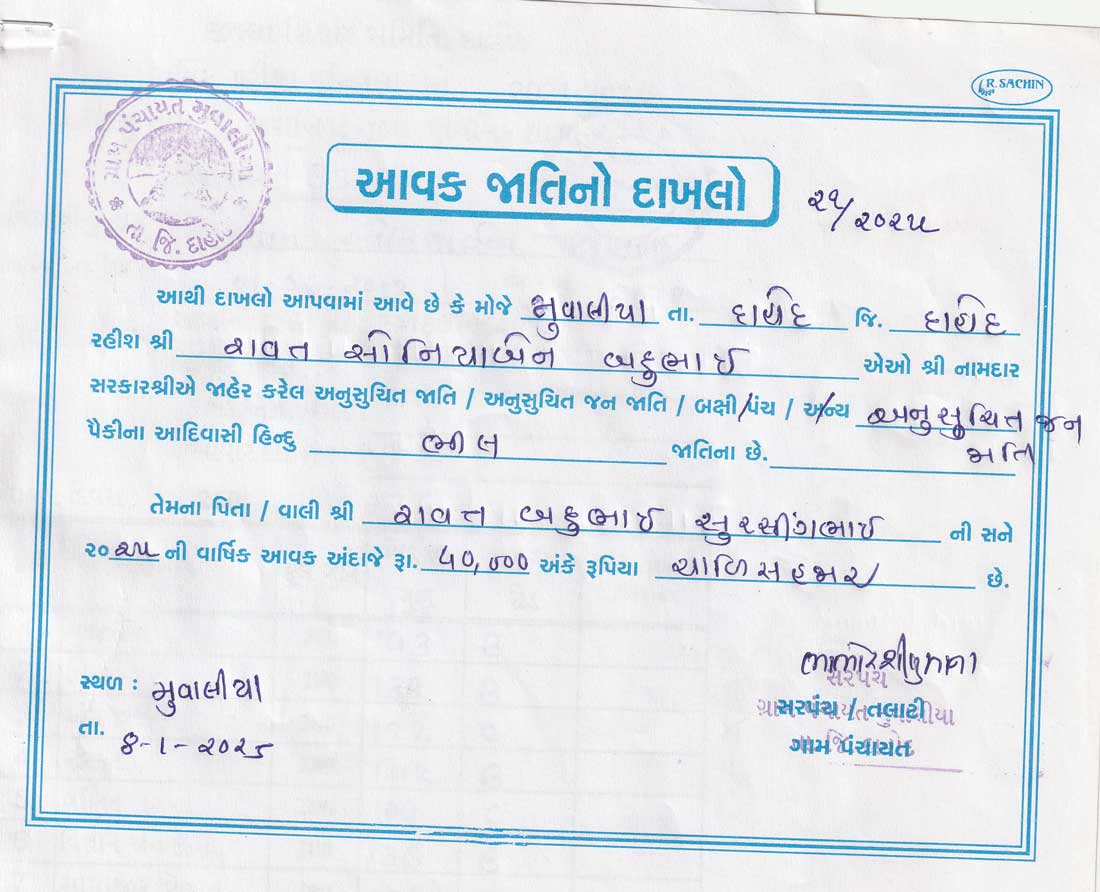 R. SACHIN
ગ્રામ પંચાયત મુવાલીયા
તા. જિ. દાહોદ
આવક જાતિનો દાખલો
૨૧/૨૦૨૫
આથી દાખલો આપવામાં આવે છે કે મોજે મુવાલીયા તા. દાહોદ જિ. દાહોદ
રહીશ શ્રી રાવત સોનિયાબેન બદુભાઈ એઓ શ્રી નામદાર
સરકારશ્રીએ જાહેર કરેલ અનુસુચિત જાતિ / અનુસુચિત જન જાતિ / બક્ષી પંચ / અન્ય અનુસુચિત જન
પૈકીના આદિવાસી હિન્દુ ભીલ જાતિના છે. જાતિ
તેમના પિતા / વાલી શ્રી રાવત બદુભાઈ સુરસીંગભાઈ ની સને
૨૦૨૫ ની વાર્ષિક આવક અંદાજે રૂા. ૪૦,૦૦૦ અંકે રૂપિયા ચાળિસહજાર છે.
સ્થળ : મુવાલીયા
તા. ૪-૧-૨૦૨૫
સરપંચ
સરપંચ / તલાટી
ગામ પંચાયત